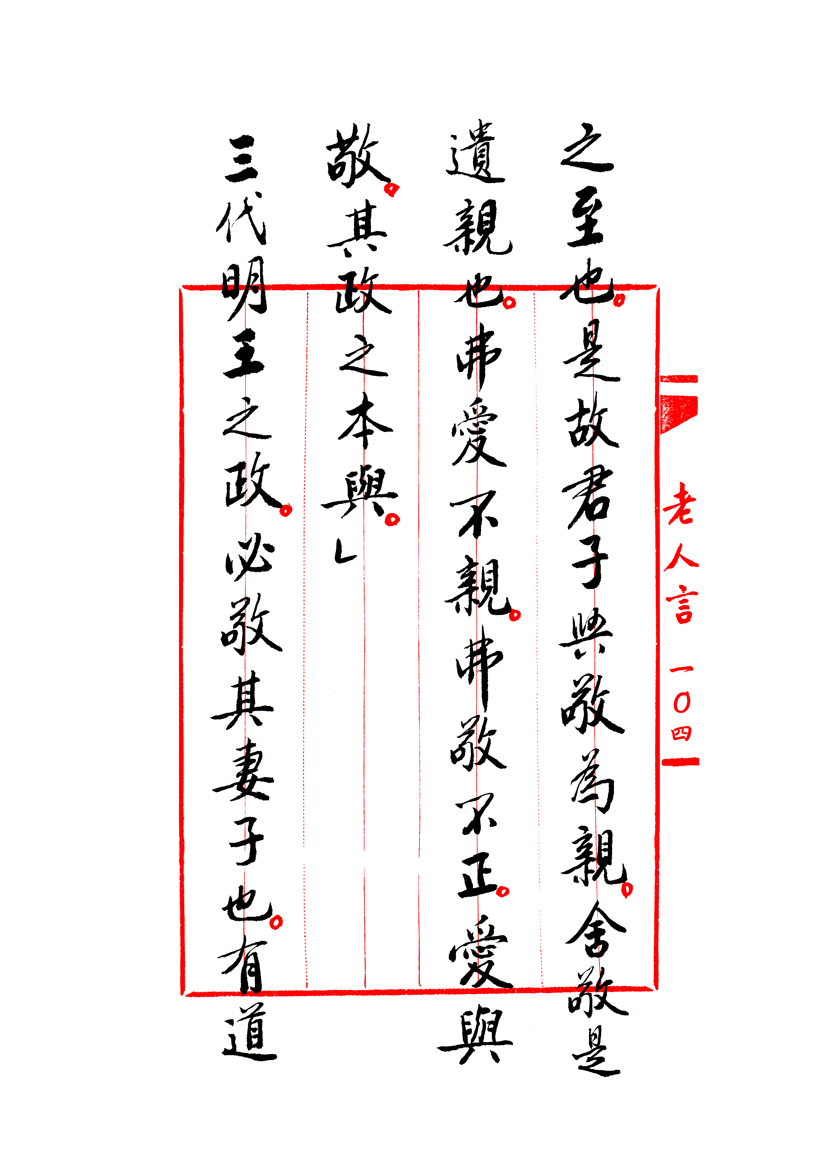 之至也。是故君子與敬為親。舍敬是
遺親也。弗愛不親。弗敬不正。愛與
敬。其政之本與。」
三代明王之政。必敬其妻子也。有道
老人言 一〇四